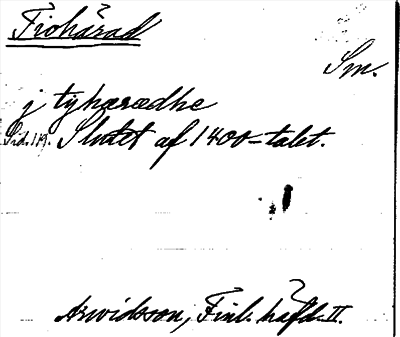 Tiohärad
Sm.
j tyhærædhe
Sid. 119. Slutet af 1400-talet.
Arwidsson, Finl. häfd. II.